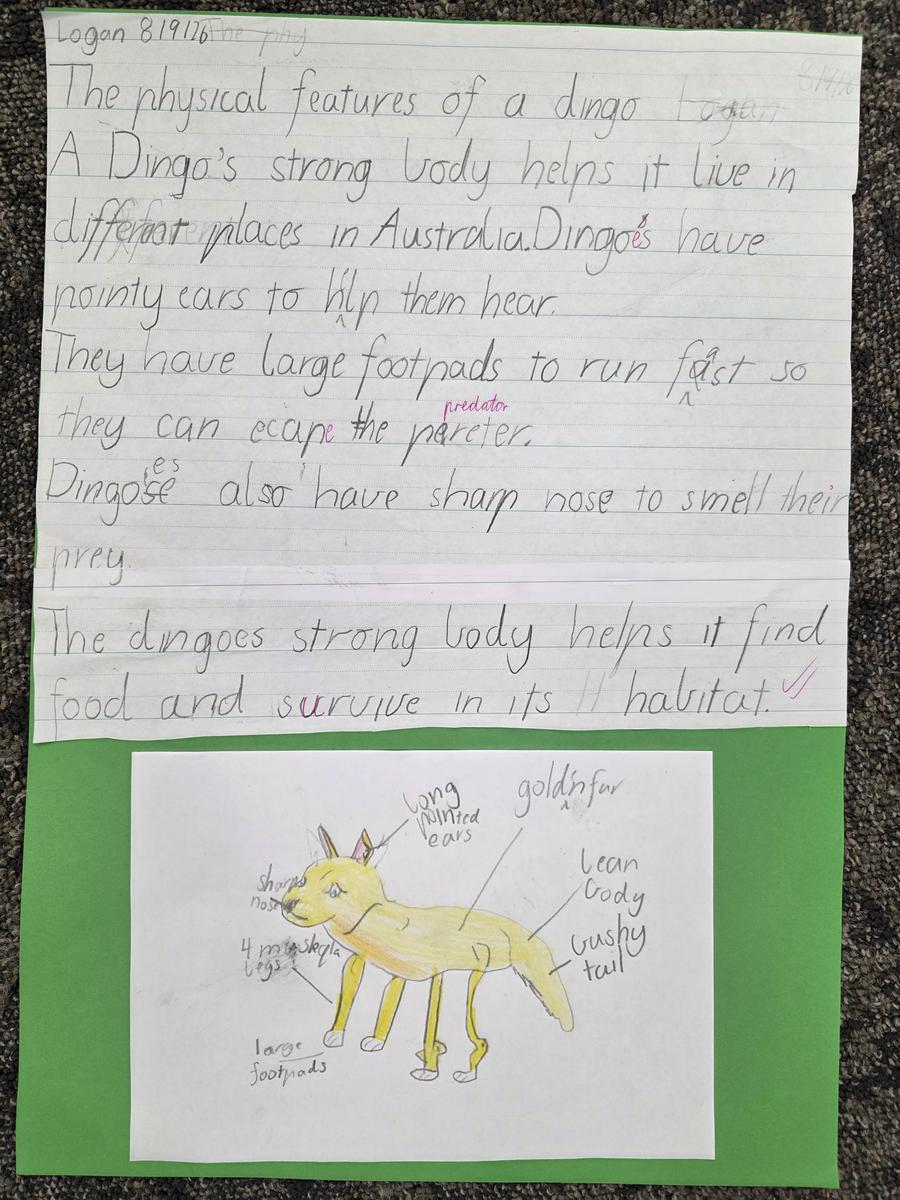 Logan 8/9/26 The phy
8/9/26
The physical features of a dingo Logan
A Dingo's strong body helps it live in
different places in Australia. Dingoes have
pointy ears to hlp them hear.
They have large footpads to run fast so
predator
they can ecape the pareter.
es
Dingo's also have sharp nose to smell their
prey.
The dingoes strong body helps it find
food and survive in its habitat.
long
pointed
ears
gold'n fur
sharp
nose
lean
body
bushy
tail
4
legs
large
footpads